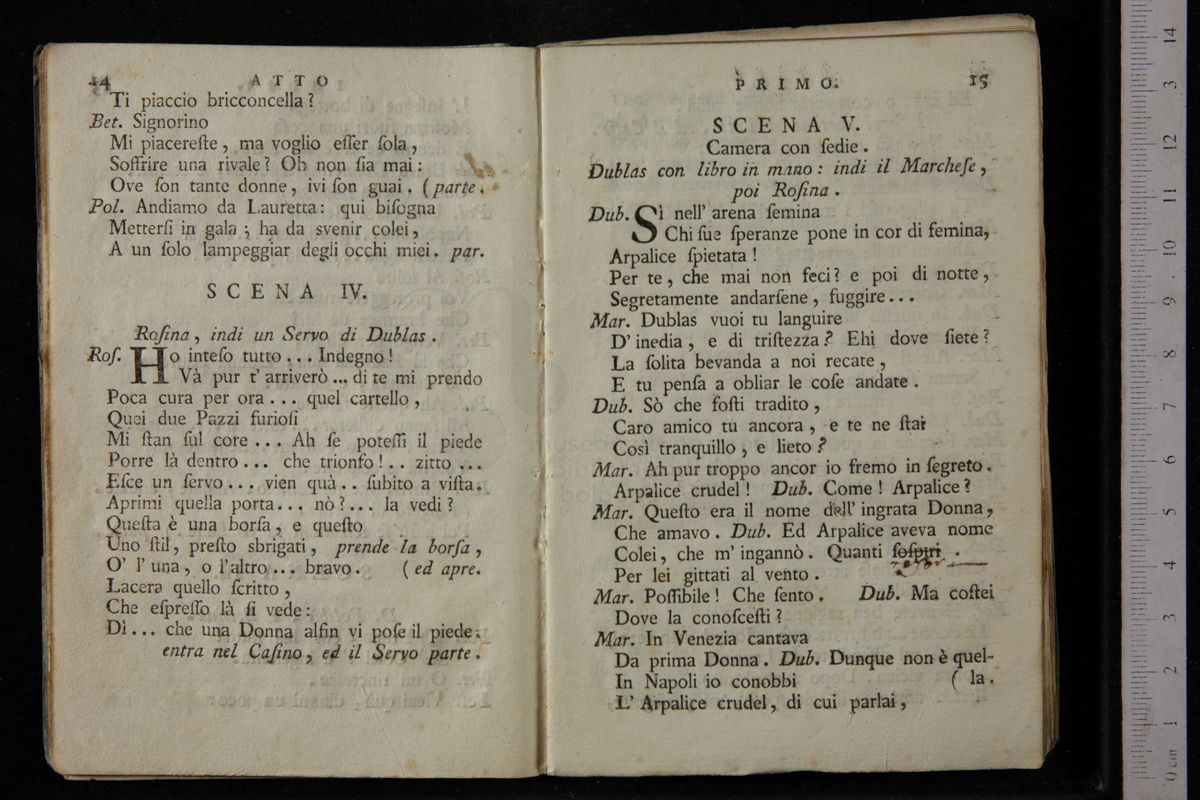 14 ATTO
Ti piaccio bricconcella?
Bet. Signorino
Mi piacereſte, ma voglio eſſer ſola,
Soffrire una rivale? Oh non ſia mai:
Ove ſon tante donne, ivi ſon guai. (parte.
Pol. Andiamo da Lauretta: qui biſogna
Metterſi in gala; ha da svenir colei,
A un ſolo lampeggiar degli occhi miei. par.
SCENA IV.
Roſina, indi un Servo di Dublas.
Roſ. Ho inteſo tutto... Indegno!
Và pur t'arriverò... di te mi prendo
Poca cura per ora... quel cartello,
Quei due Pazzi furioſi
Mi ſtan ſul core... Ah ſe poteſſi il piede
Porre là dentro... che trionfo!.. zitto...
Eſce un ſervo... vien quà.. ſubito a viſta.
Aprimi quella porta... nò?... la vedi?
Queſta è una borſa, e queſto
Uno ſtil, preſto sbrigati, prende la borſa,
O' l'una, o l'altro... bravo. (ed apre.
Lacera quello ſcritto,
Che eſpreſſo là ſi vede:
Di... che una Donna alfin vi poſe il piede.
entra nel Caſino, ed il Servo parte.
PRIMO. 15
SCENA V.
Camera con ſedie.
Dublas con libro in mano: indi il Marcheſe,
poi Roſina.
Dub. Sì nell' arena ſemina
Chi ſue ſperanze pone in cor di femina,
Arpalice ſpietata!
Per te, che mai non feci? e poi di notte,
Segretamente andarſene, fuggire...
Mar. Dublas vuoi tu languire
D' inedia, e di triſtezza? Ehi dove ſiete?
La ſolita bevanda a noi recate,
E tu penſa a obliar le coſe andate.
Dub. Sò che foſti tradito,
Caro amico tu ancora, e te ne ſtai
Così tranquillo, e lieto?
Mar. Ah pur troppo ancor io fremo in ſegreto.
Arpalice crudel! Dub. Come! Arpalice?
Mar. Queſto era il nome dell' ingrata Donna,
Che amavo. Dub. Ed Arpalice aveva nome
Colei, che m' ingannò. Quanti ſoſpiri.
Per lei gittati al vento.
Mar. Poſſibile! Che ſento. Dub. Ma coſtei
Dove la conoſceſti?
Mar. In Venezia cantava
Da prima Donna. Dub. Dunque non è quel-
In Napoli io conobbi (la.
L' Arpalice crudel, di cui parlai,
0 cm 1 2 3 4 5 6 7 8 9 10 11 12 13 14